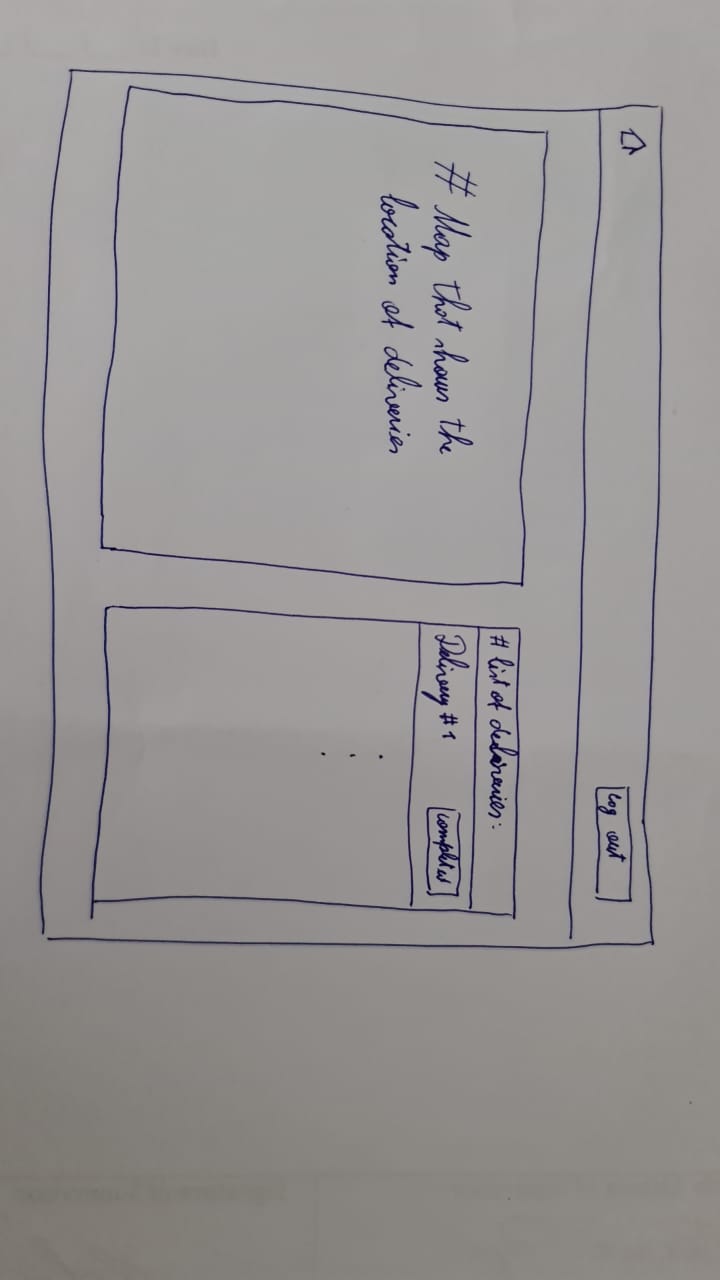 log out
# Map that shows the
location of deliveries
# list of deliveries:
Delivery #1
completed